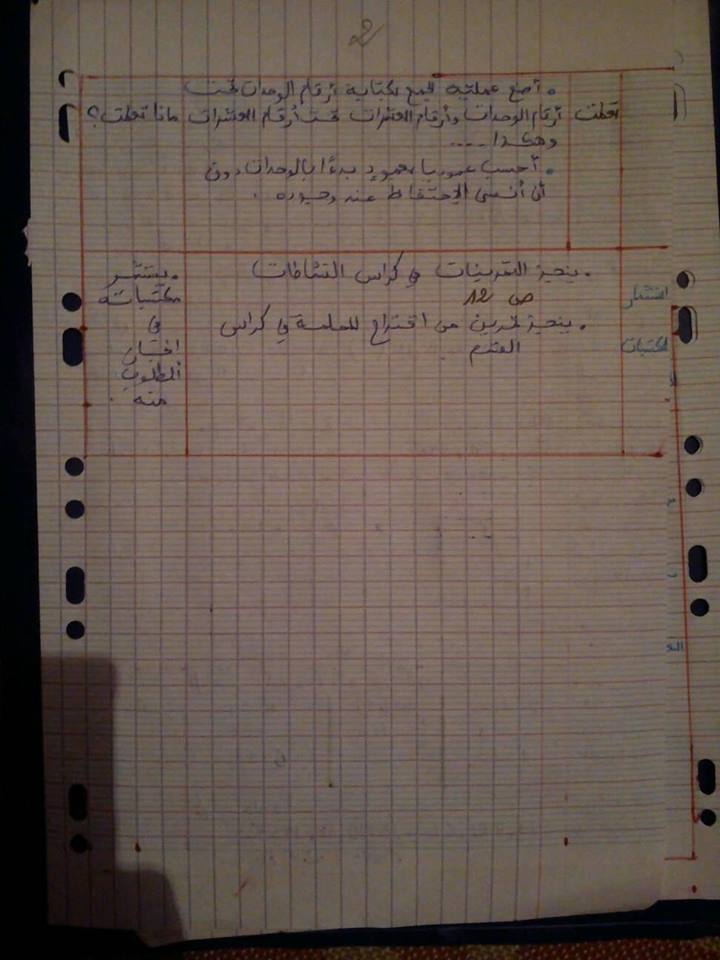 2
تعلمت
. أضع عملية الجمع بكتابة أرقام الوحدات تحت
أرقام الوحدات وأرقام العشرات تحت أرقام العشرات
وهكذا ....
. أحسب عموديا بعمود بدءًا بالوحدات دون
أن أنسى الإحتفاظ عند وجوده .
ماذا تعلمت؟
استثمار
المكتسبات
. ينجز التمرينات في كراس النشاطات
ص 12
. ينجز تمرين من اقتراح المعلمة في كراس
القسم
. يستثمر
مكتسباته
في
انجاز
المطلوب
منه .